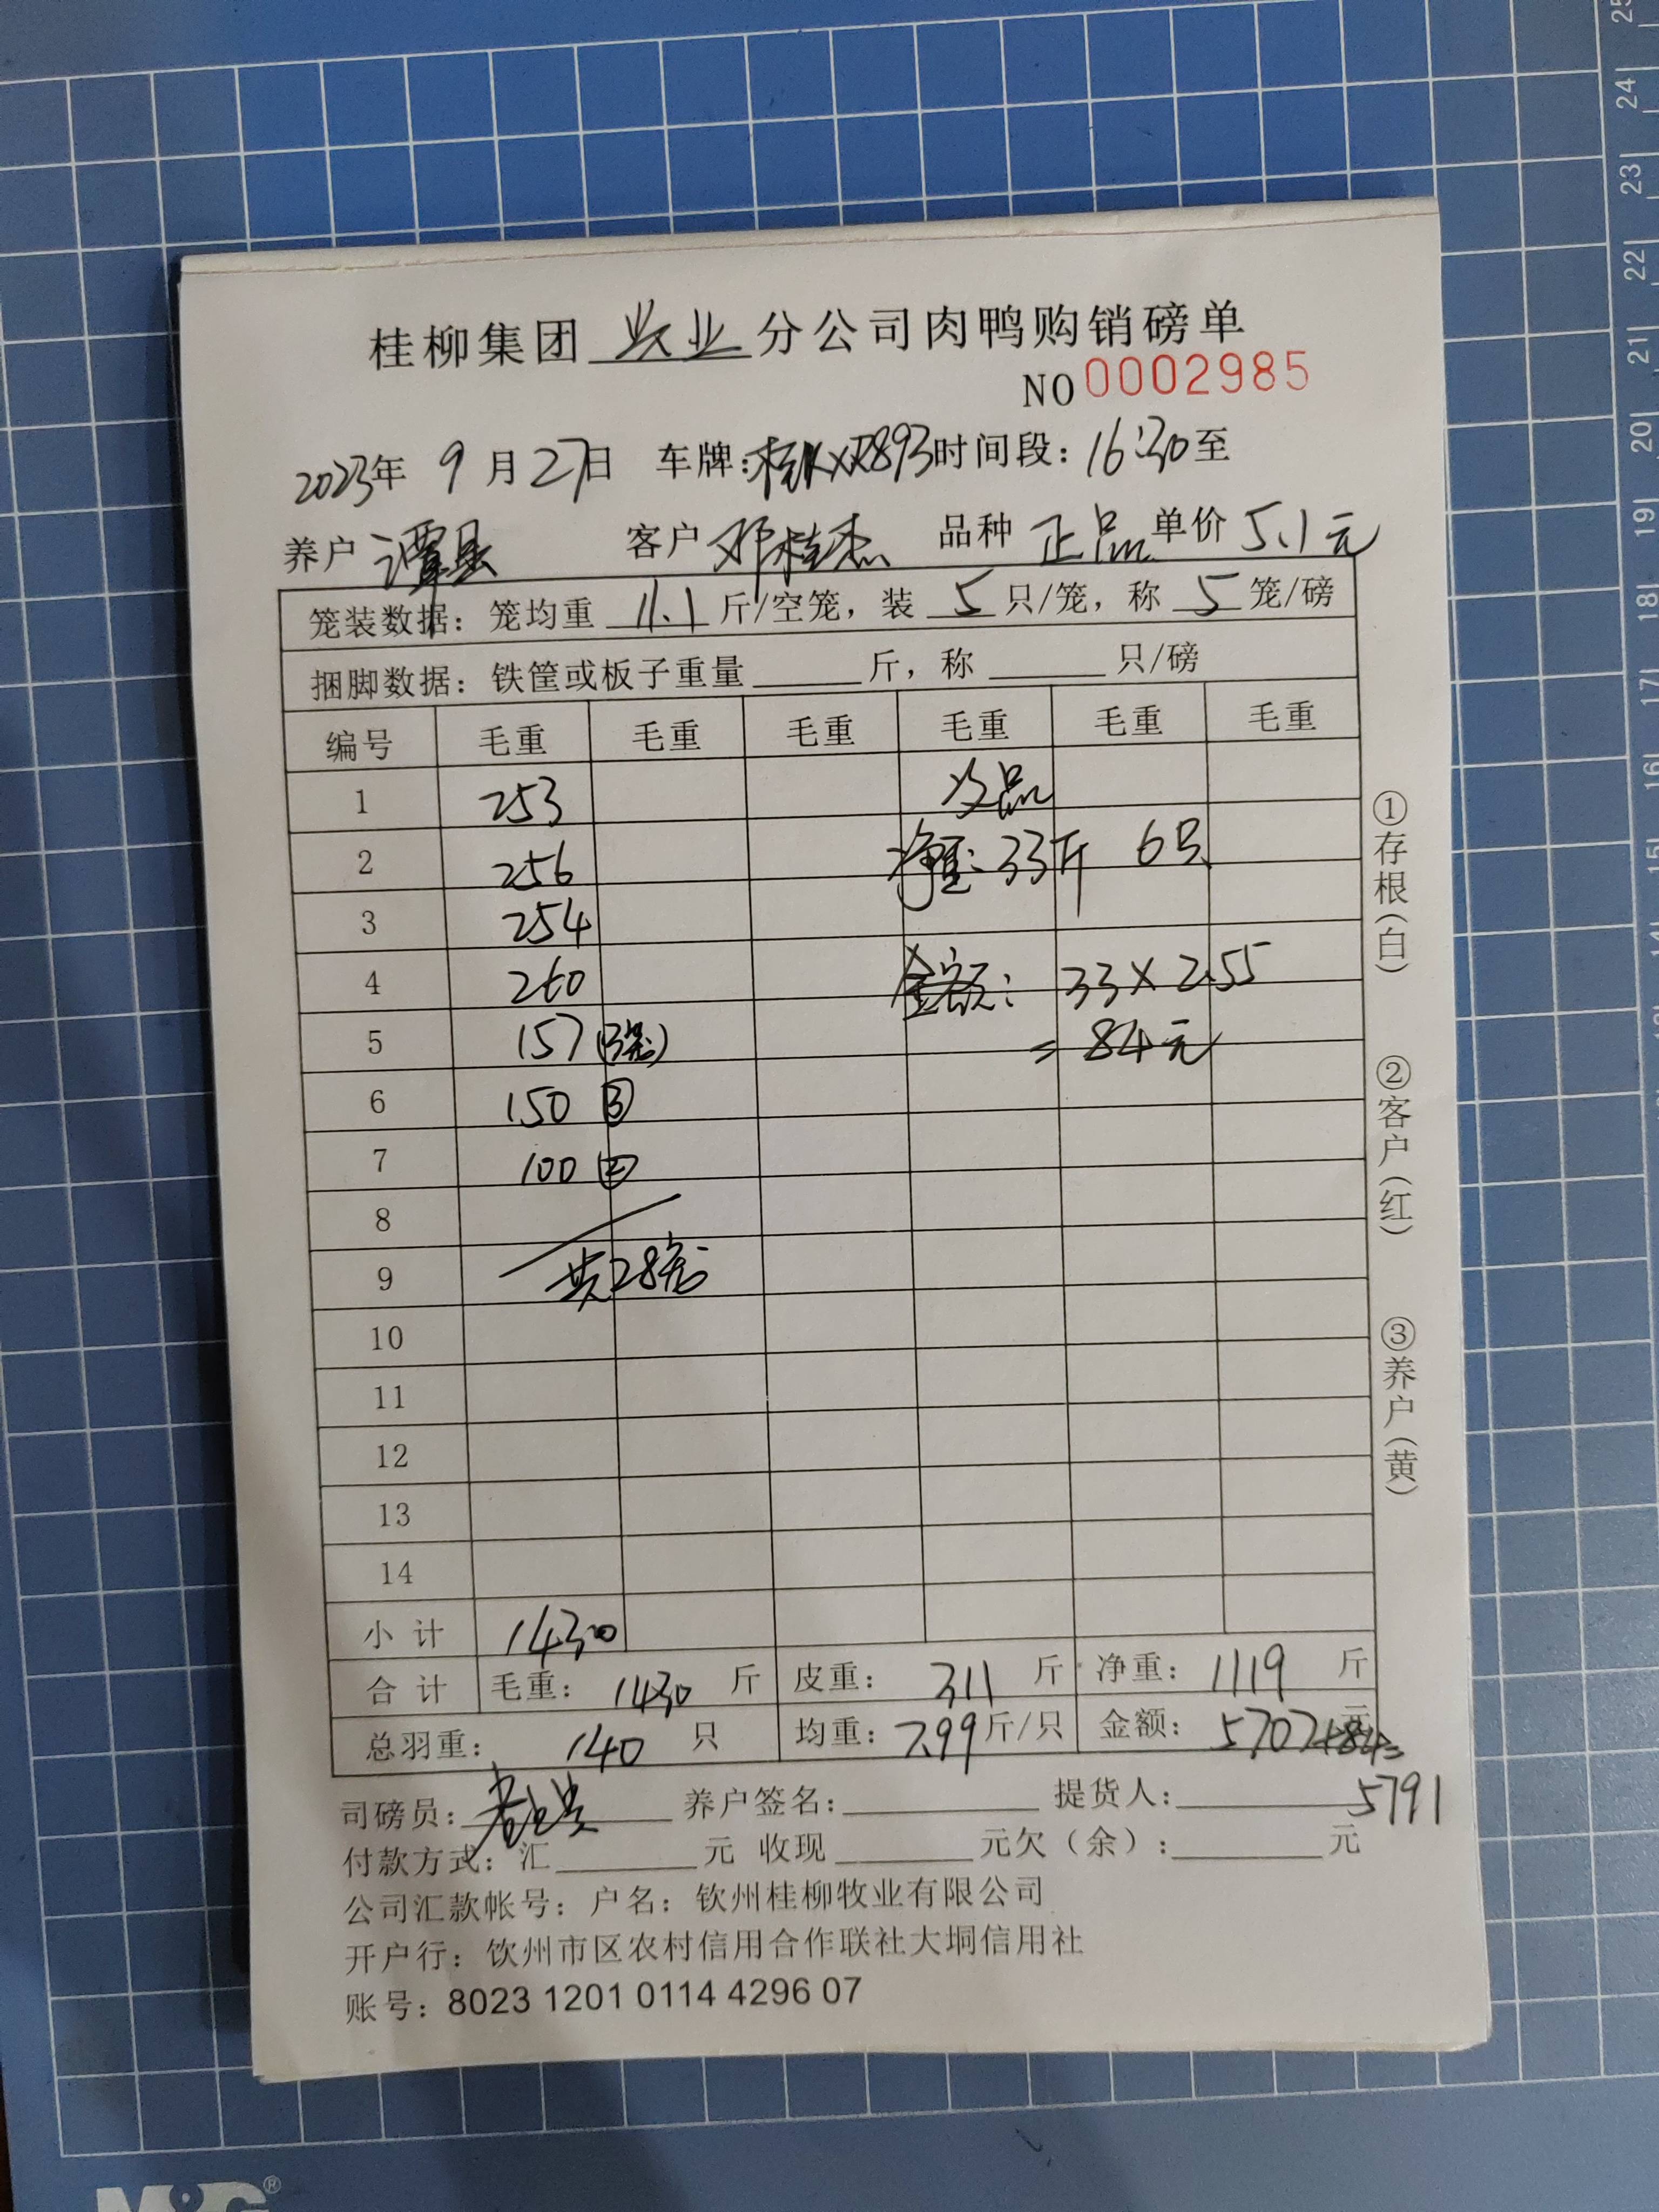 桂柳集团 牧业 分公司肉鸭购销磅单
NO 0002985
2023年 9 月 27日 车牌: 893 时间段: 16:30至
养户 谭 客户 邓桂杰 品种 正品 单价 5.1元
笼装数据: 笼均重 11.1 斤/空笼, 装 5 只/笼, 称 5 笼/磅
捆脚数据: 铁筐或板子重量 斤, 称 只/磅
编号 毛重 毛重 毛重 毛重 毛重 毛重
1 253 次品
2 256 净重: 33斤 6只
3 254
4 260 金额: 33×2.55
5 157 (3笼) = 84元
6 150 ③
7 100 ②
8
9 共28笼
10
11
12
13
14
小计 1430
合计 毛重: 1430 斤 皮重: 311 斤 净重: 1119 斤
总羽重: 140 只 均重: 7.99斤/只 金额: 5707+84= 元
5791
司磅员: 养户签名: 提货人:
付款方式: 汇 元 收现 元欠(余): 元
公司汇款帐号: 户名: 钦州桂柳牧业有限公司
开户行: 钦州市区农村信用合作联社大垌信用社
账号: 8023 1201 0114 4296 07
①存根(白)
②客户(红)
③养户(黄)
25
24
23
22
21
20
19
18
17
16
15
14
M&G®